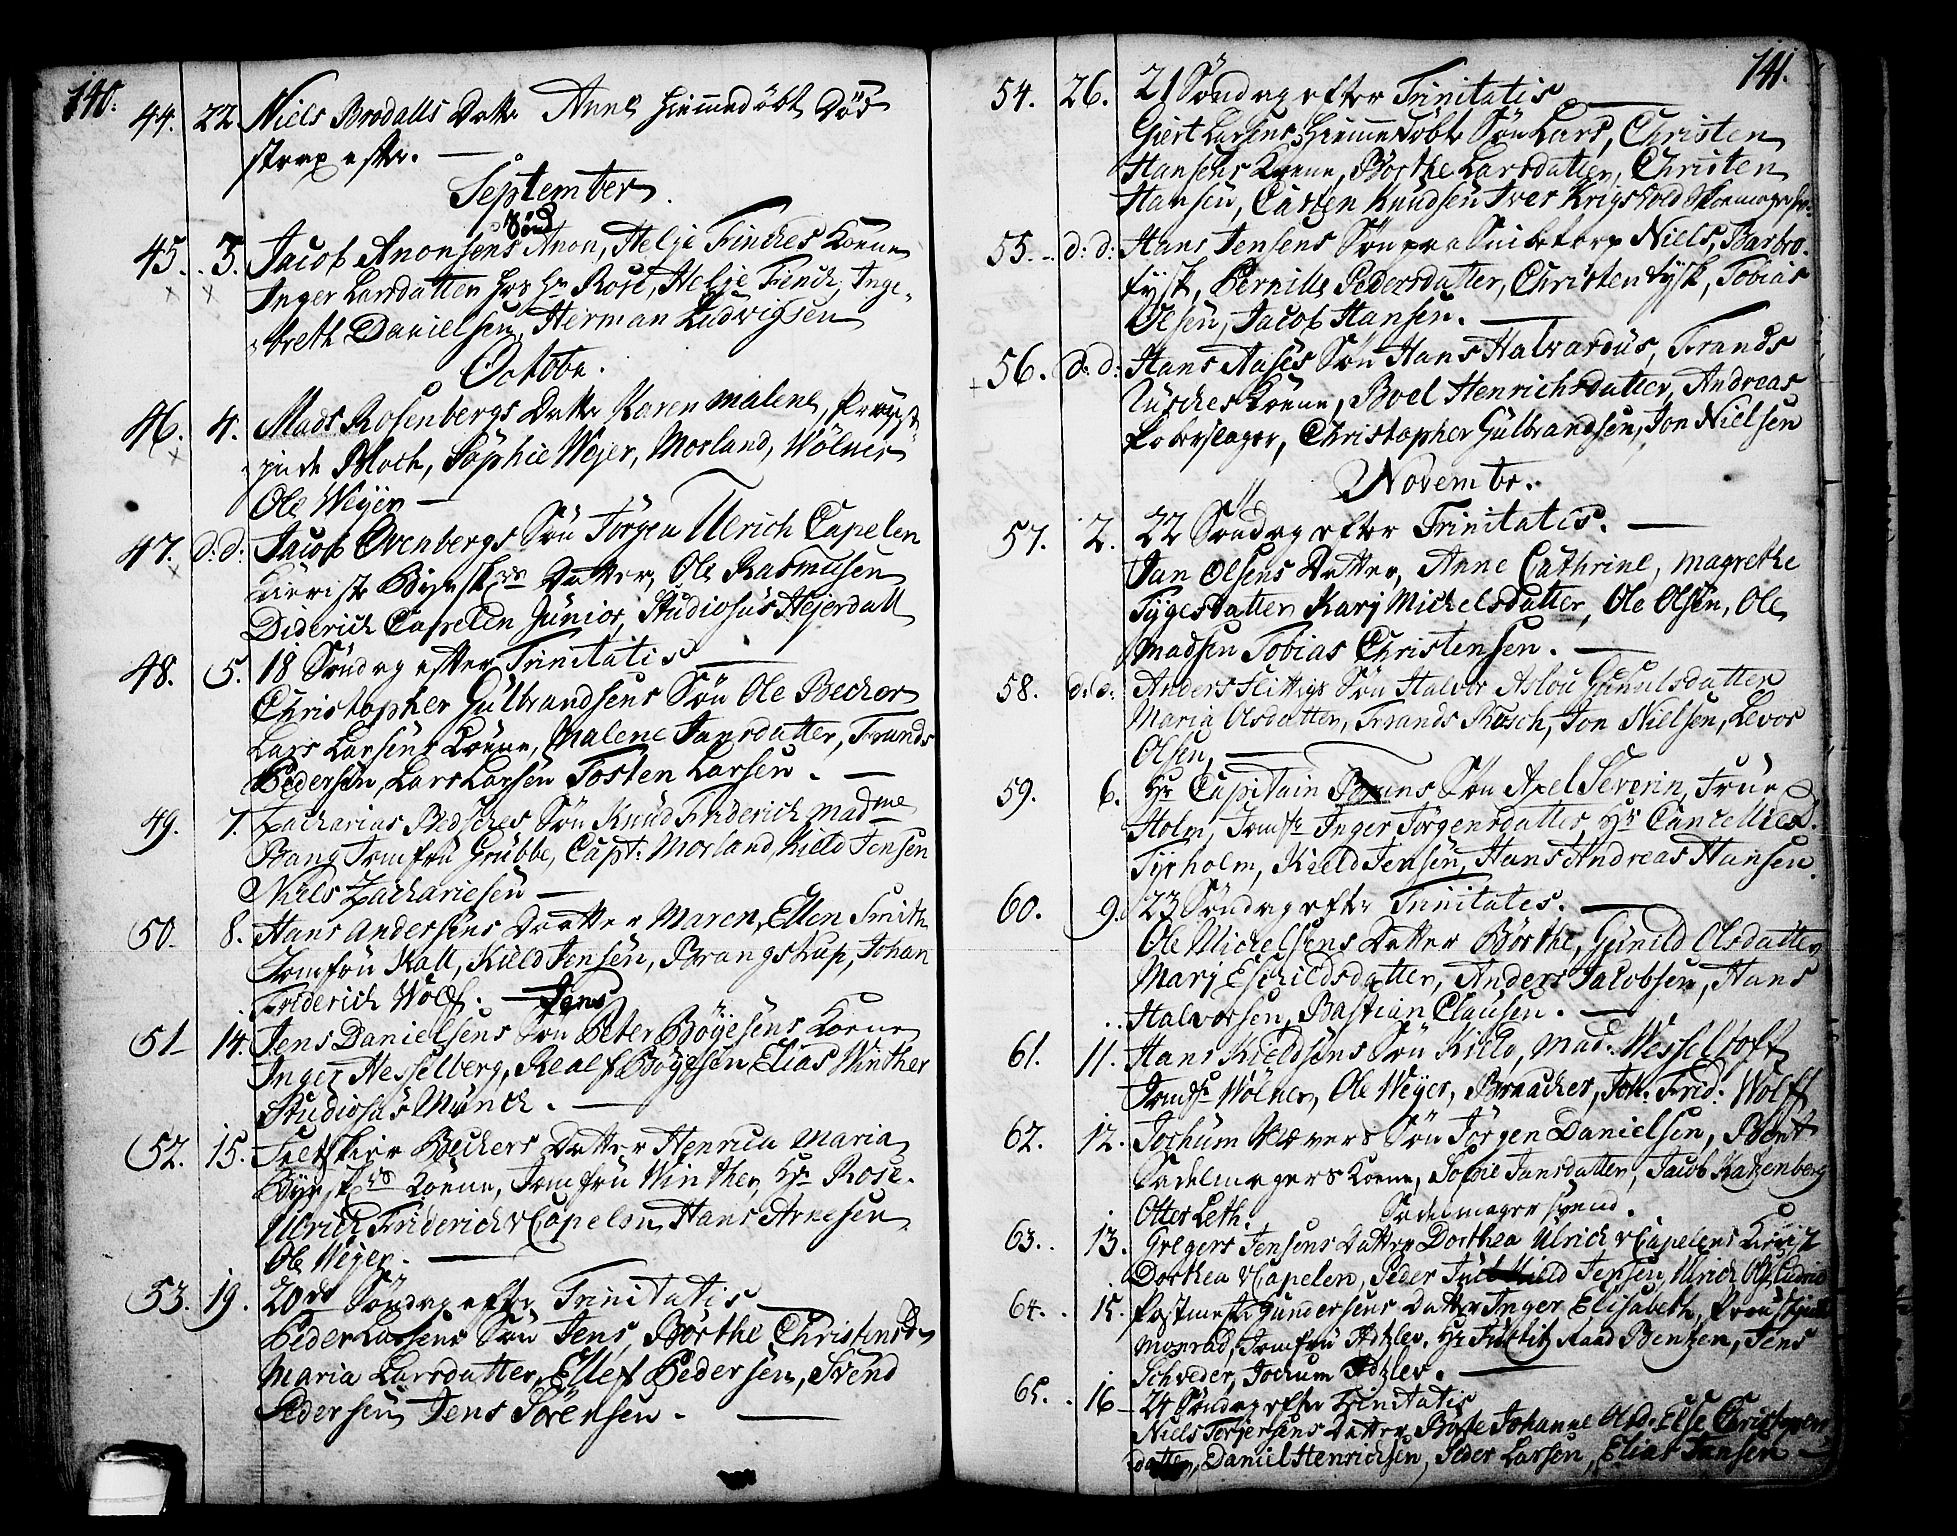 140.
44. 22. Niels Brodalls Datter Anne hiemmedøbt Døs
strax efter.
September
Sönd
45. 3. Jacob Anonsens Anon, Helje Finckes Koene
Inger Larsdatter hos Hr Rose, Helje Finck, Inge-
breth Danielsen, Herman Ludvigsen
October.
46. 4. Mads Rosenbergs Datter Karen Malene, Provst-
inde Bloch, Sophie Wejer, Morland, Wölner
Ole Weyer
47. d: d: Jacob Ovenbergs Sön Jörgen Ulrich Capelen
Datter, Ole Rasmusen
Diderich Capelen Junior, Studiosus Hejerdall
48. 5. 18 Söndag efter Trinitatis
Christopher Gulbrandsens Sön Ole Becker
Lars Larsens Koene, Malene Jansdatter, Frands
Pedersen, Lars Larsen Tosten Larsen.
49. 7. Zacharias Bedsches Sön Knud Friderich Madme
Bang Jomfru Grubbe, Capt: Morland, Kield Jensen
Niels Zachariesen
50. 8. Hans Andersens Datter Maren, Ellen Smith
Jomfru Kall, Kield Jensen, Brangstrup, Johan
Friderich Wolff.
Jens
51 14. Jens Danielsens Sön Peter Böyesens Koene
Inger Hesselberg, Realf Böyesen Elias Winther
Studiosus Munch.
52. 15. Beckers Datter Henrica Maria
Koene, Jomfru Winther, Hr Rose.
Ulrich Friderich v Capelen Hans Arnesen
Ole Weyer.
53. 19. 20de Söndag efter Trinitatis
Peder Larsens Sön Jens, Börthe Christensd
Maria Larsdatter, Ellef Pedersen, Svend
Pedersen Jens Sörensen.
141.
54. 26. 21 Söndag efter Trinitatis
Giert Larsens hiemmedöbte Sön Lars, Christen
Hansens Koene, Börthe Larsdatter, Christen
Hansen, Carsten Knudsen Iver Krigsvold
55. d: d: Hans Jensens Sön paa Niels, Barbro
Fysk, Pernille Pedersdatter, Christen Fysk, Tobias
Olsen, Jacob Hansen.
56. d: d: Hans Aases Sön Hans Halvardus, Frands
Rusches Koene, Boel Henrichsdatter, Andreas
Christopher Gulbrandsen, Jon Nielsen
Novembr.
57. 2. 22 Söndag efter Trinitatis.
Jan Olsens Datter, Anne Cathrine, Magrethe
Tygesdatter Karj Michelsdatter, Ole Olsen, Ole
Madsen Tobias Christensen.
58. d: d: Anders Flittigs Sön Halvor Aslou
Maria Olsdatter, Frands Rusch, Jon Nielsen, Levor
Olsen,
59. 6. Hr Capitain Bruns Sön Axel Severin, Frue
Holm, Jomfr Inger Jörgensdatter, Hr
Tyrholm, Kield Jensen, Hans Andreas Hansen.
60. 9. 23 Söndag efter Trinitates.
Ole Michelsens Datter Börthe, Gunild Olsdatter
Marj Eskildsdatter, Anders Jacobsen, Hans
Halvorsen, Bastian Clausen.
61. 11. Hans Kieldsens Sön Kield, Mad. Wesseltoft
Jomfr Wölner, Ole Weyer, Braacker, Joh: Fred: Wolff
62. 12. Jochum Klævers Sön Jörgen Danielsen, Bent
Sadelmagers Koene, Sophie Jansdatter, Jacob Katzenberg
Otter Leth. Sadelmager svend.
63. 13. Gregers Jensens Datter Dorthea Ulrich v Capelens
Dorthea v Capelen, Peder Juel Kield Jensen, Ulrich
64. 15. Postmester Gundersens Datter Inger Elisabeth, Provstjnde
Monrad, Jomfru Adzlev. Hr Justitz Raad Bentzen, Jens
Schveder, Jochum Adzlev.
65. 16 24 Söndag efter Trinitatis
Niels Terjersens Datter Johanne Olsd: Else Christophers
datter, Daniel Henrichsen, Peder Larsen, Elias Jansen